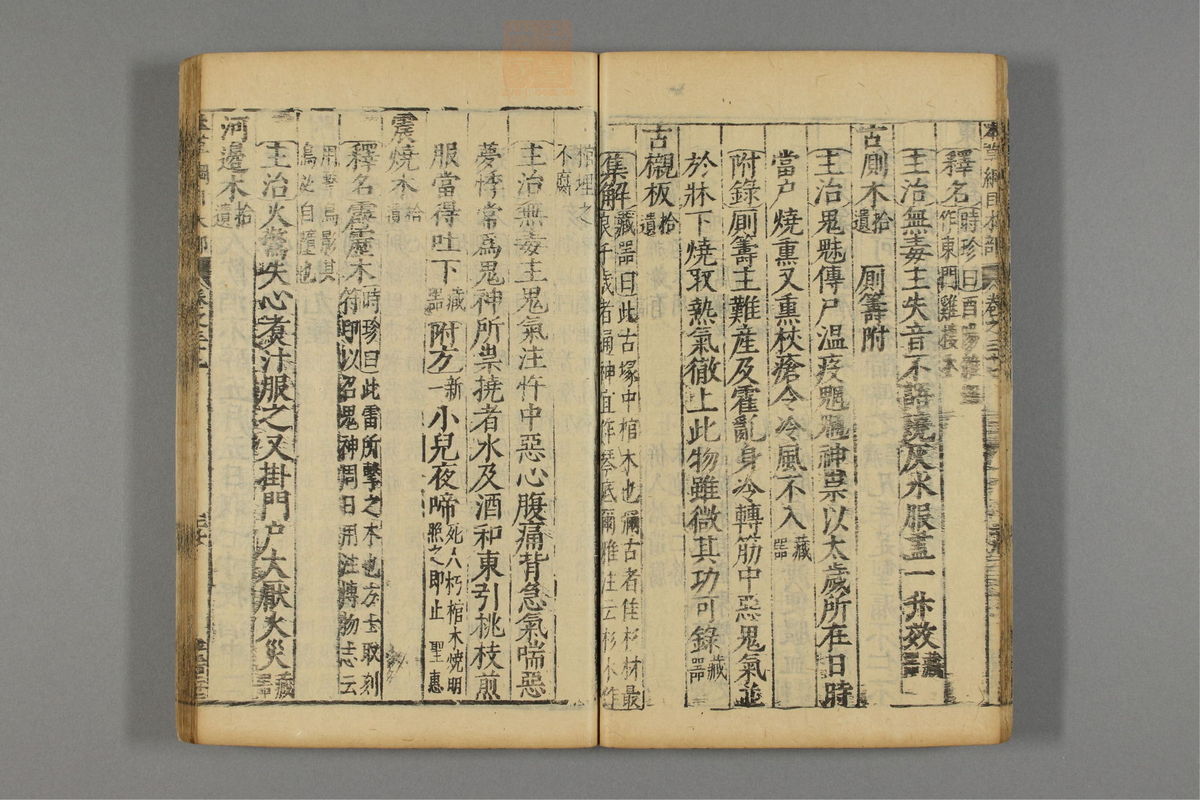 本草綱目木部 卷之三十七
釋名時珍曰酉陽雜
作東門雞棲木
主治無毒主失音不語燒灰水服盡一升效藏器
古厠木拾遺 厠籌附
主治鬼魅傳尸温疫魍魎神祟以太歲所在日時
當户燒熏又熏杖瘡令冷風不入藏器
附錄厠籌主難産及霍亂身冷轉筋中惡鬼氣並
於牀下燒取熱氣徹上此物雖微其功可錄藏器
古櫬板拾遺
集解藏器曰此古塚中棺木也彌古者佳杉材最
良千歲者通神宜作琴底爾雅注云杉木作
棺埋之
不腐
主治無毒主鬼氣注忤中惡心腹痛背急氣喘惡
夢悸常爲鬼神所祟撓者水及酒和東引桃枝煎
服當得吐下藏器附方新一小兒夜啼死人朽棺木燒明
照之即止 聖惠
震燒木拾遺
釋名霹靂木時珍曰此雷所擊之木也方士取刻
符印以召鬼神周日用注博物志云
用擊鳥影其
鳥必自墮也
主治火驚失心煮汁服之又掛門户大厭火災藏器
河邊木拾遺